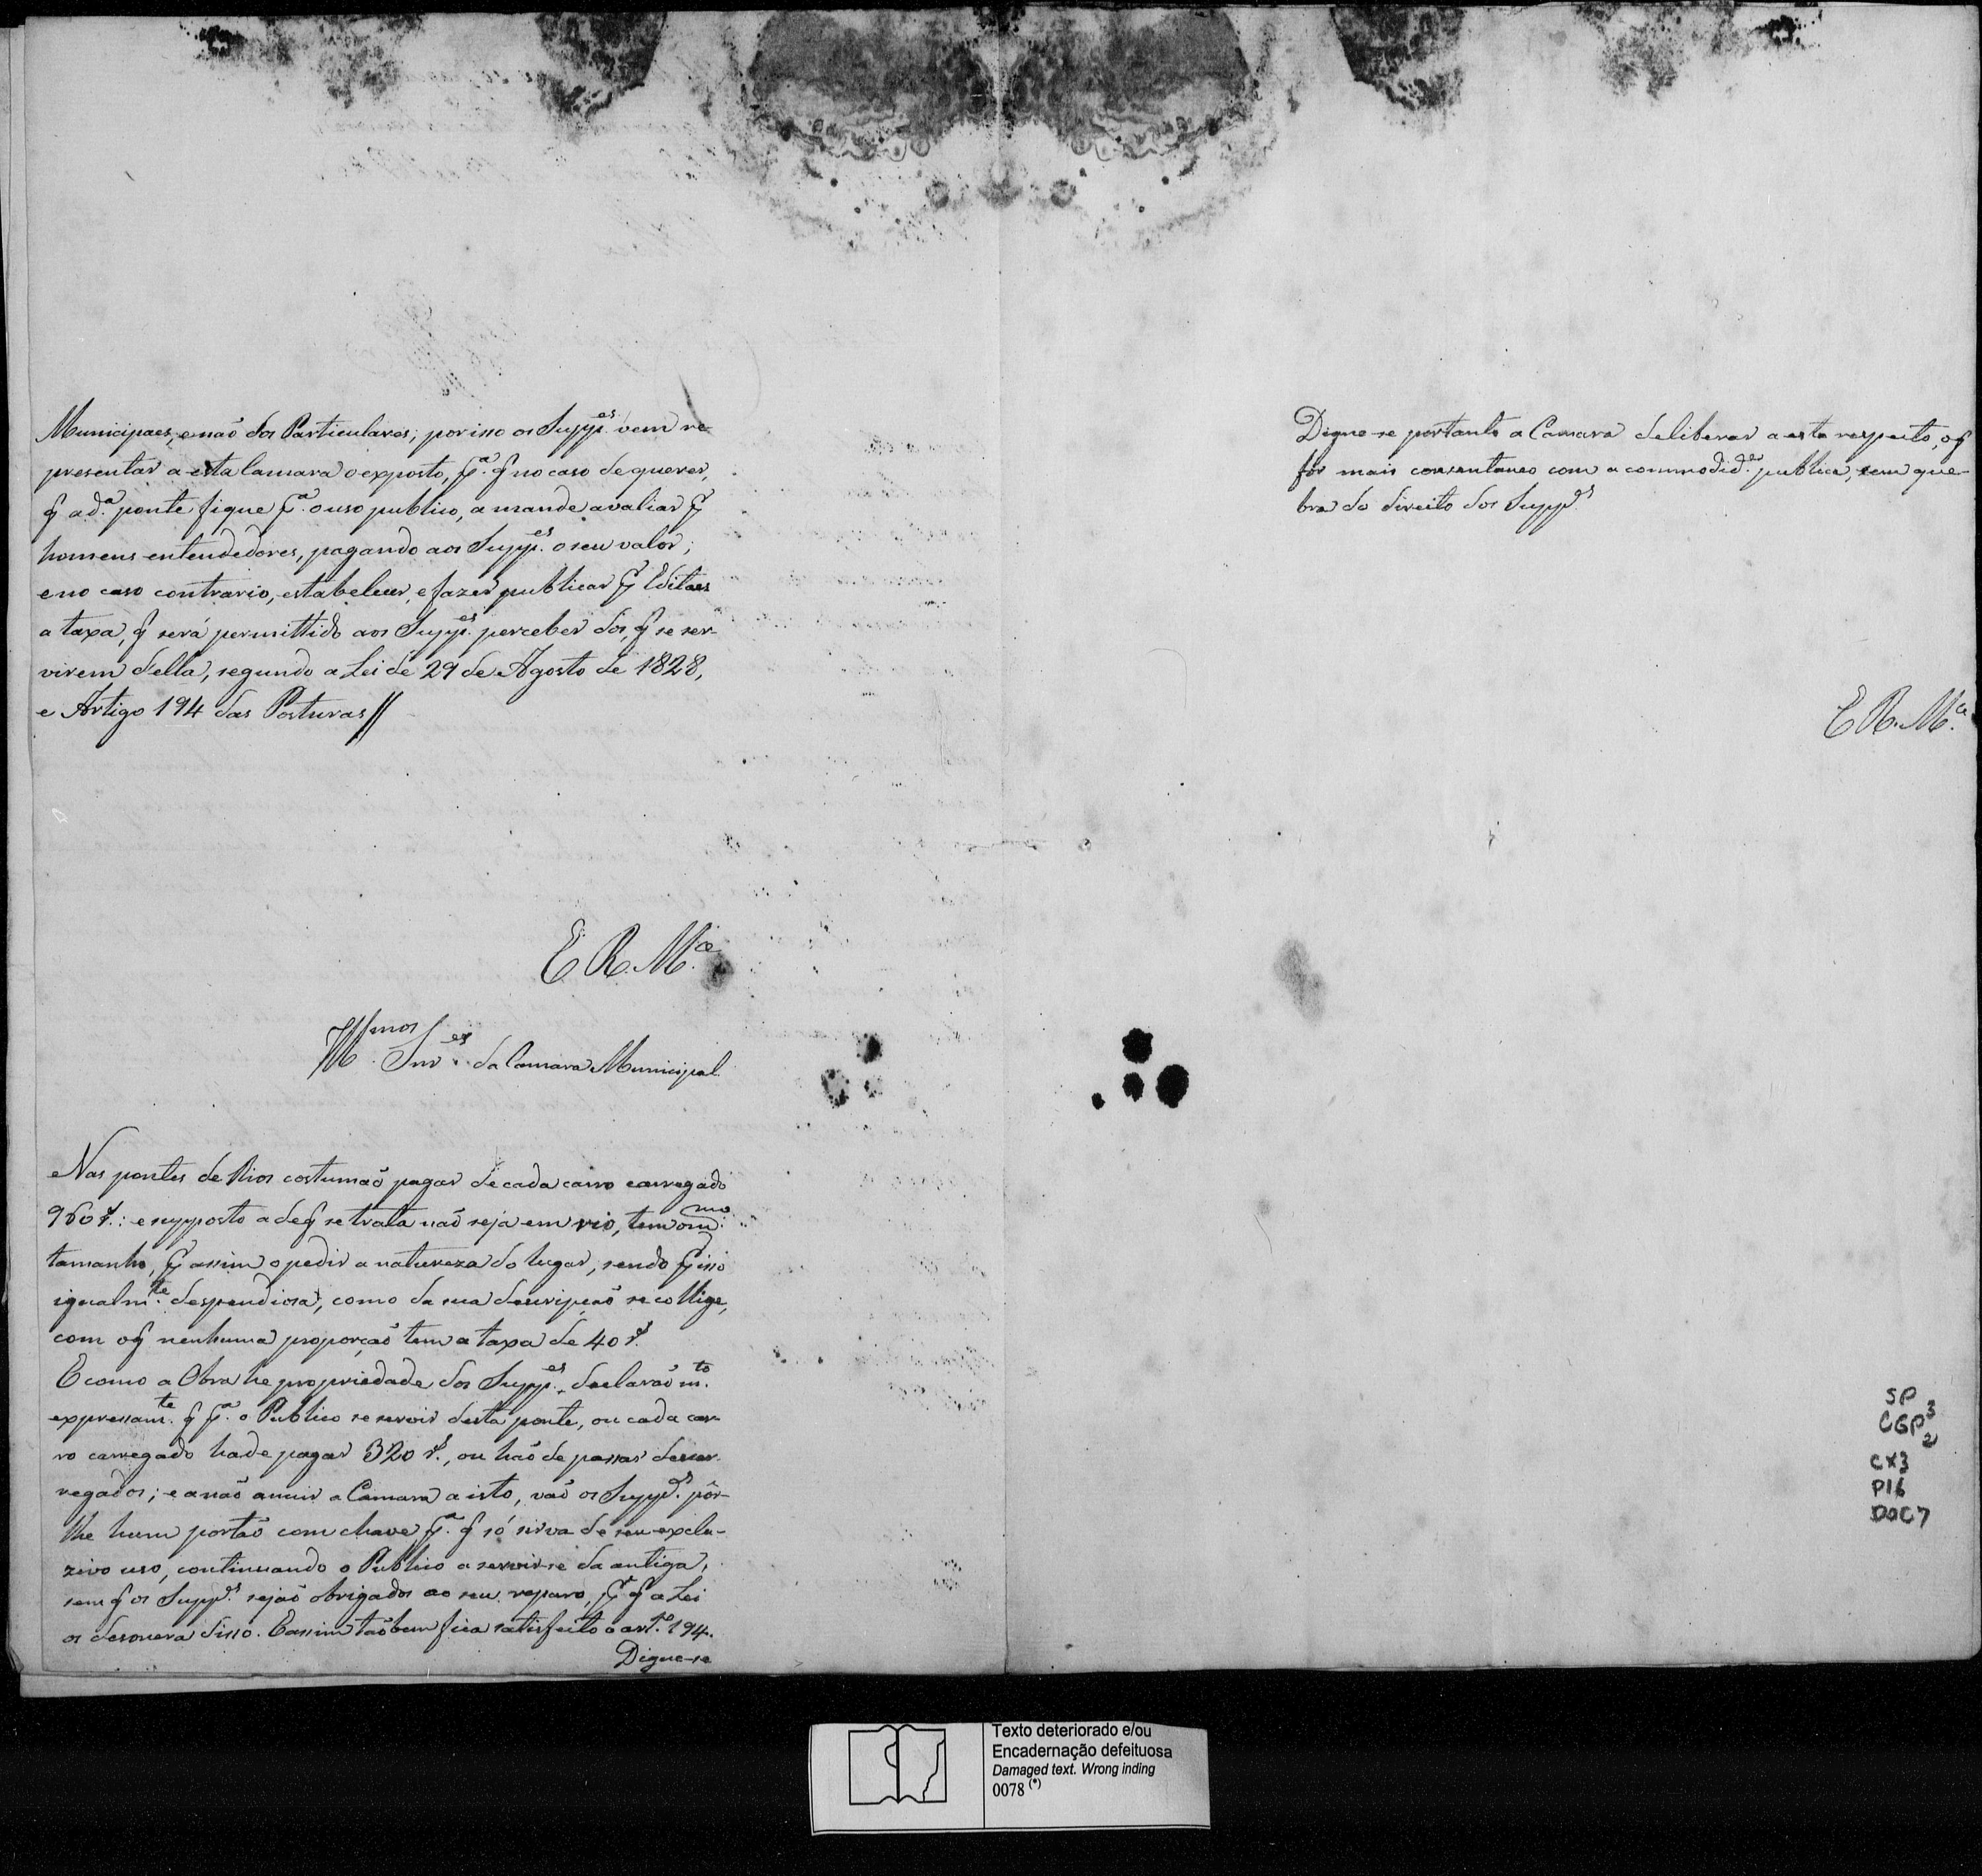 Municipaes, e naõ dos Particulares; por isso os Supp.es vem re-
presentar a esta Camara o exposto, p.a q no caso de querer,
q a d.a ponte fique p.a o uso publico, a mande avaliar p.r
homens entendedores, pagando aos Supp.es o seu valor;
e no caso contrario, estabelecer, e fazer publicar p.r Editaes
a taxa, q será permittido aos Supp.es perceber dos, q se ser-
virem della, segundo a Lei de 29 de Agosto de 1828,
e Artigo 194 das Posturas//
E. R. M.ce
Ill.mos Snr.es da Camara Municipal
Nas pontes de Rios costumaõ pagar de cada carro carregado
960 r.s: e supposto a de q se trata naõ seja em rio, tem o m.mo
tamanho, p.r assim o pedir a natureza do lugar, sendo p.r isso
igualm.te despendiosa, como da sua descripçaõ se collige,
com o q nenhuma proporçaõ tem a taxa de 40 r.s
E como a Obra he propriedade dos Supp.es, declaraõ m.to
expressam.te q p.a o Publico se servir desta ponte, ou cada car-
ro carregado hade pagar 320 r.s, ou haõ de passar descar-
regados; e a naõ anuir a Camara a isto, vaõ os Supp.es pôr-
lhe hum portaõ com chave p.a q só sirva de seu exclu-
zivo uso, continuando o Publico a servir-se da antiga,
sem q os Supp.es sejaõ obrigados ao seu reparo, p.r q a Lei
os desonera disso. E assim taõbem fica satisfeito o art.o 194.
Digne-se
Digne-se portanto a Camara deliberar a este respeito, o q
fôr mais consentaneo com a commodid.e publica, sem que-
bra do direito dos Supp.es
E. R. M.ce
SP
CGP3
2
CX3
P16
DOC7
Texto deteriorado e/ou
Encadernação defeituosa
Damaged text. Wrong inding
0078 (*)